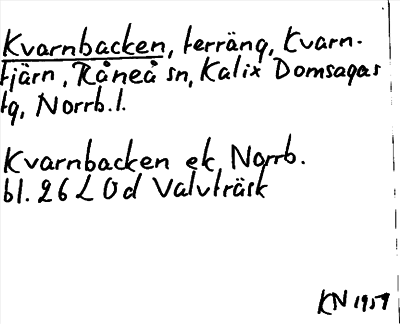 Kvarnbacken, terräng, Kvarn-
tjärn, Råneå sn, Kalix Domsagas
tg, Norrb.l.
Kvarnbacken ek, Norrb.
bl. 26 L 0d Valvträsk
KN 1959